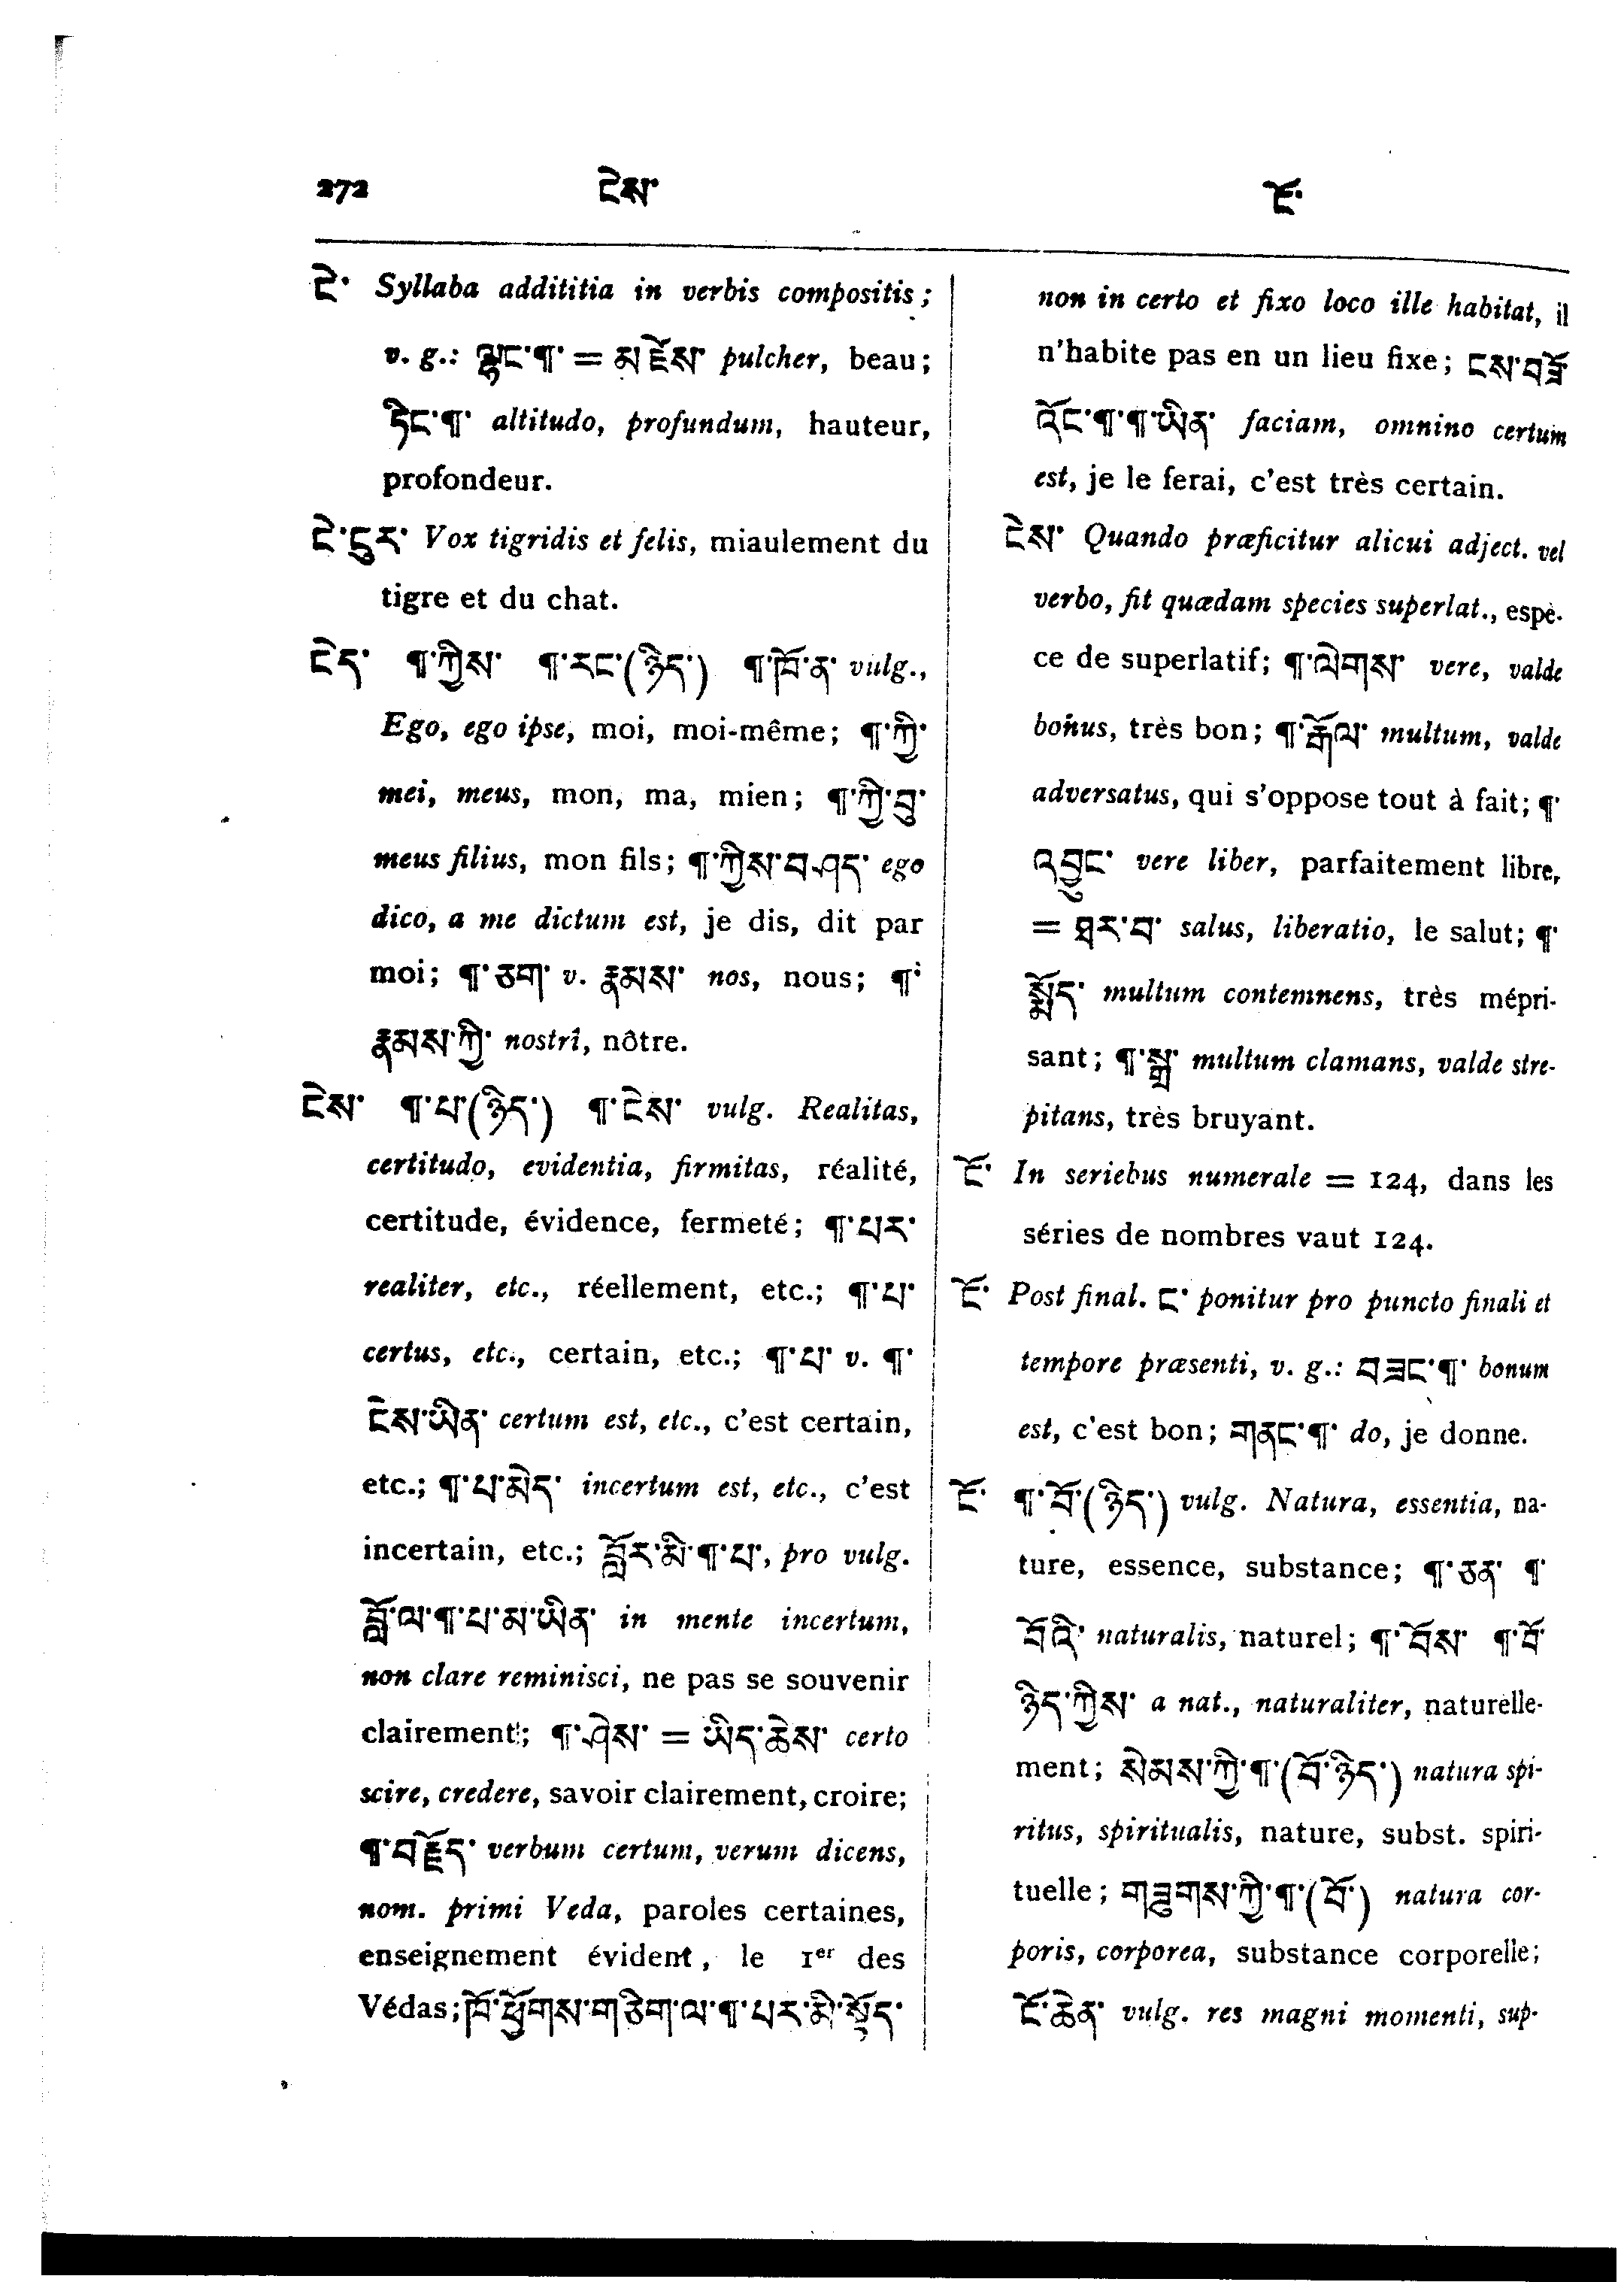 272 ངེས་ ངོ་
ངེ་ Syllaba addititia in verbis compositis;
v. g.: ལྷང་¶་ = མཛེས་ pulcher, beau;
ཏིང་¶་ altitudo, profundum, hauteur,
profondeur.
ངེ་ངུར་ Vox tigridis et felis, miaulement du
tigre et du chat.
ངེད་ ¶་ཀྱིས་ ¶་རང་(ཉིད་) ¶་ཁོ་ན་ vulg.,
Ego, ego ipse, moi, moi-même; ¶་ཀྱི་
mei, meus, mon, ma, mien; ¶་ཀྱི་བུ་
meus filius, mon fils; ¶་ཀྱིས་བཤད་ ego
dico, a me dictum est, je dis, dit par
moi; ¶་ཅག་ v. རྣམས་ nos, nous; ¶་
རྣམས་ཀྱི་ nostri, nôtre.
ངེས་ ¶་པ་(ཉིད་) ¶་ངེས་ vulg. Realitas,
certitudo, evidentia, firmitas, réalité,
certitude, évidence, fermeté; ¶་པར་
realiter, etc., réellement, etc.; ¶་པ་
certus, etc., certain, etc.; ¶་པ་ v. ¶་
ངེས་ཡིན་ certum est, etc., c'est certain,
etc.; ¶་པ་མེད་ incertum est, etc., c'est
incertain, etc.; བློར་མི་¶་པ་, pro vulg.
བློ་ལ་¶་པ་མ་ཡིན་ in mente incertum,
non clare reminisci, ne pas se souvenir
clairement; ¶་ཤེས་ = ཡིད་ཆེས་ certo
scire, credere, savoir clairement, croire;
¶་བརྗོད་ verbum certum, verum dicens,
nom. primi Veda, paroles certaines,
enseignement évident, le 1er des
Védas; ཁོ་ཕྱོགས་གཅིག་ལ་¶་པར་མི་སྡོད་
non in certo et fixo loco ille habitat, il
n'habite pas en un lieu fixe; ངས་བཟོ་
འོང་¶་¶་ཡིན་ faciam, omnino certum
est, je le ferai, c'est très certain.
ངེས་ Quando præficitur alicui adject. vel
verbo, fit quædam species superlat., espè-
ce de superlatif; ¶་ལེགས་ vere, valde
bonus, très bon; ¶་རྒོལ་ multum, valde
adversatus, qui s'oppose tout à fait; ¶་
འབྱུང་ vere liber, parfaitement libre,
= ཐར་བ་ salus, liberatio, le salut; ¶་
སྨོད་ multum contemnens, très mépri-
sant; ¶་སྒྲ་ multum clamans, valde stre-
pitans, très bruyant.
ངོ་ In seriebus numerale = 124, dans les
séries de nombres vaut 124.
ངོ་ Post final. ང་ ponitur pro puncto finali et
tempore præsenti, v. g.: བཟང་¶་ bonum
est, c'est bon; གནང་¶་ do, je donne.
ངོ་ ¶་བོ་(ཉིད་) vulg. Natura, essentia, na-
ture, essence, substance; ¶་ཅན་ ¶་
བོའི་ naturalis, naturel; ¶་བོས་ ¶་བོ་
ཉིད་ཀྱིས་ a nat., naturaliter, naturelle-
ment; སེམས་ཀྱི་¶་(བོ་ཉིད་) natura spi-
ritus, spiritualis, nature, subst. spiri-
tuelle; གཟུགས་ཀྱི་¶་(བོ་) natura cor-
poris, corporea, substance corporelle;
ངོ་ཆེན་ vulg. res magni momenti, sup-